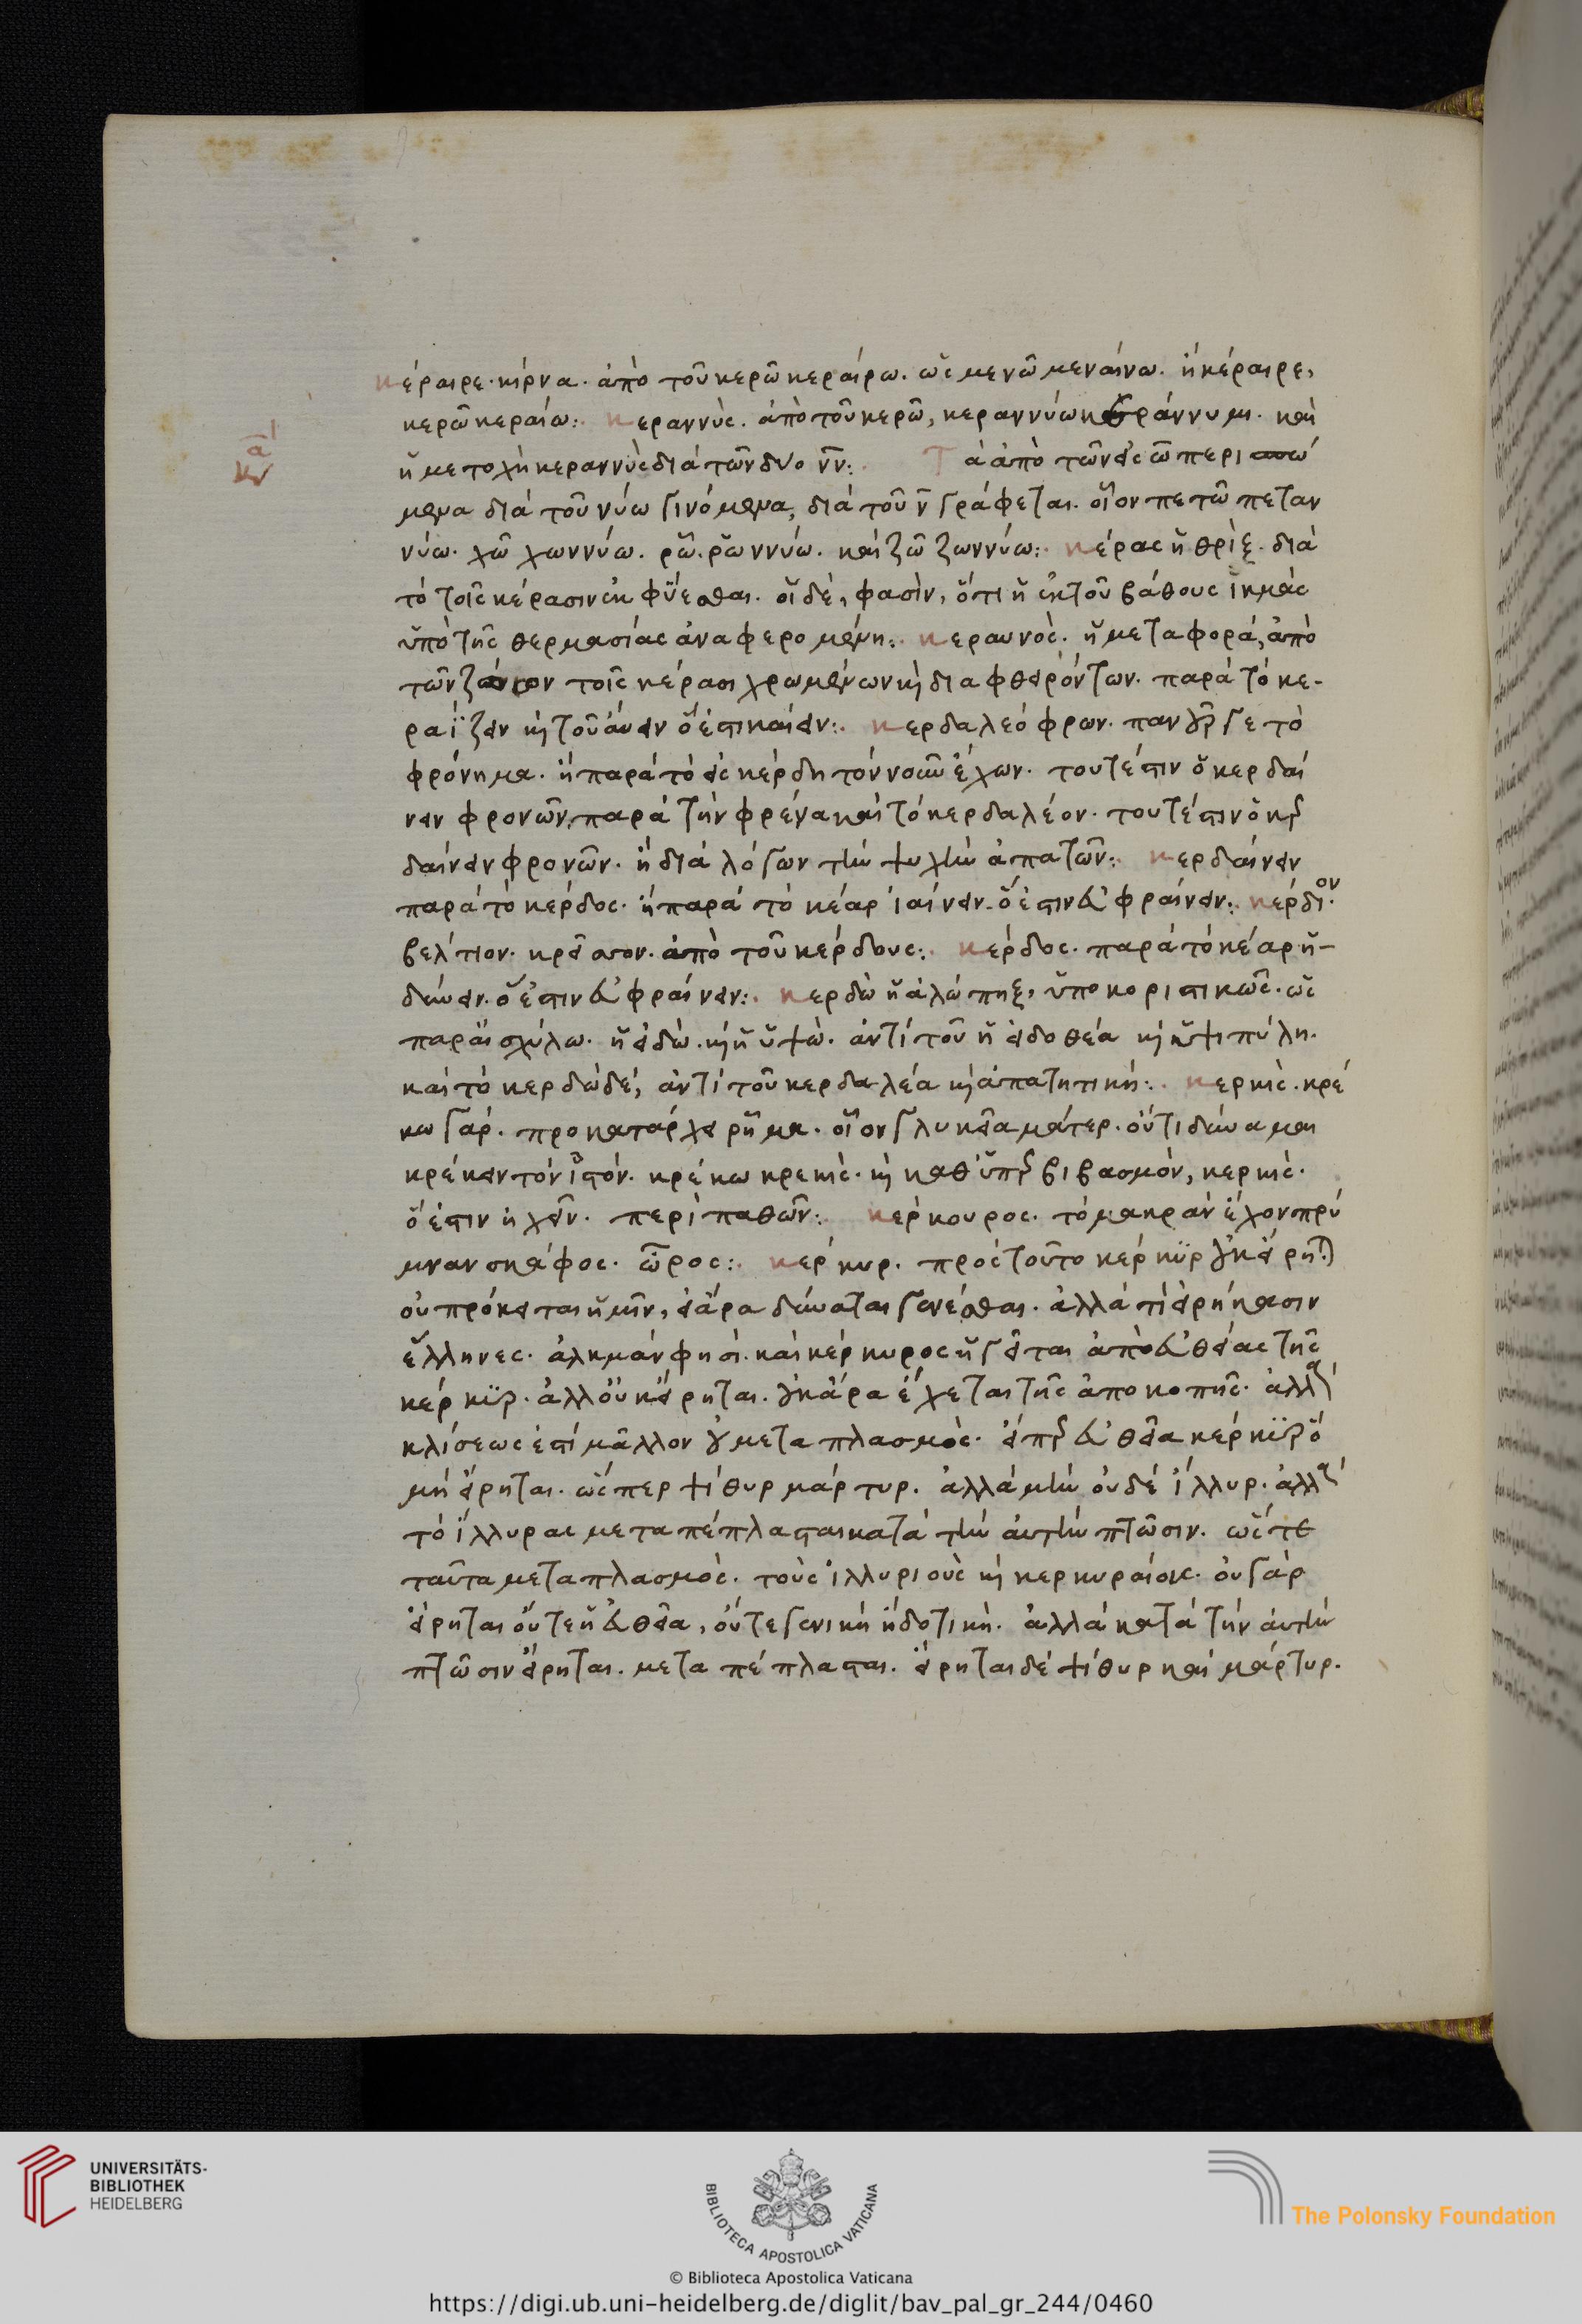 κέραιρε· κίρνα. ἀπὸ τοῦ κερῶ κεραίρω. ὡς μενῶ μεναίνω. ἢ κέραιρε,
κερῶ κεραίω:. κεραννὺς. ἀπὸ τοῦ κερῶ, κεραννύω κεράννυμι. καὶ
ἡ μετοχὴ κεραννὺς διὰ τῶν δύο νν:. Τὰ ἀπὸ τῶν εἰς ῶ περισπω
μενα διὰ τοῦ νύω γινόμενα, διὰ τοῦ ν γράφεται. οἷον πετῶ πεταν
νύω. χῶ χωννύω. ῥῶ. ῥωννύω. καὶ ζῶ ζωννύω:. κέρας ἡ θρὶξ. διὰ
τὸ τοῖς κέρασιν ἐκφύεσθαι. οἱ δὲ, φασὶν, ὅτι ἡ ἐκ τοῦ βάθους ἰκμὰς
ὑπὸ τῆς θερμασίας ἀναφερομένη:. κεραυνὸς. ἡ μεταφορὰ, ἀπὸ
τῶν ζώων τοῖς κέρασι χρωμένων κ διαφθειρόντων. παρὰ τὸ κε-
ραΐζειν κ τοῦ αὔειν ὅ ἐστι καίειν:. κερδαλεόφρων. πανοῦργε τὸ
φρόνημα. ἢ παρὰ τὸ εἰς κέρδη τὸν νοῦν ἔχων. τουτέστιν ὁ κερδαί
νειν φρονῶν, παρὰ τὴν φρένα καὶ τὸ κερδαλέον. τουτέστιν ὁ κερ
δαίνειν φρονῶν. ἢ διὰ λόγων τὴν ψυχὴν ἀπατῶν:. κερδαίνειν
παρὰ τὸ κέρδος. ἢ παρὰ τὸ κέαρ ἰαίνειν. ὅ ἐστιν εὐφραίνειν:. κέρδιον.
βέλτιον. κρεῖσσον. ἀπὸ τοῦ κέρδους:. κέρδος. παρὰ τὸ κέαρ ἡ-
δύνειν. ὅ ἐστιν εὐφραίνειν:. κερδὼ ἡ ἀλώπηξ, ὑποκοριστικῶς. ὡς
παρ' αἰσχύλω. ἡ εἰδὼ. κ ἡ ὑψὼ. ἀντὶ τοῦ ἡ εἰδοθέα κ ὑψιπύλη.
καὶ τὸ κερδὼ δὲ, ἀντὶ τοῦ κερδαλέα κ ἀπατητική:. κερκὶς. κρέ
κω γάρ. προκατάρχει ῥῆμα. οἷον γλυκεῖα μᾶτερ. οὔτι δύναμαι
κρέκειν τὸν ἱστόν. κρέκω κρεκὶς. κ καθ' ὑπερβιβασμὸν, κερκὶς.
ὅ ἐστιν ἠχεῖν. περὶ παθῶν:. κέρκουρος. τὸ μακρὰν ἔχον πρύ
μναν σκάφος. ὦρος:. κέρκυρ. πρὸς τοῦτο κέρκυρ οὐκ εἴρηται
οὐ πρόκειται ἡμῖν, εἰ ἄρα δύναται γενέσθαι. ἀλλὰ τί εἰρήκασιν
ἕλληνες. ἀλκμάν φησι. καὶ κέρκυρος ἡγεῖται ἀπὸ εὐθείας τῆς
κέρκυρ. ἀλλ' οὐκ εἴρηται. οὐκ ἄρα ἔχεται τῆς ἀποκοπῆς. ἀλλὰ
κλίσεως ἐστὶ μᾶλλον ὁ μεταπλασμὸς. εἴπερ εὐθεῖα κέρκυρ ὃ
μὴ εἴρηται. ὥσπερ ψίθυρ μάρτυρ. ἀλλὰ μὴν οὐδὲ ἴλλυρ. ἀλλὰ
τὸ ἴλλυρας μεταπέπλασται κατὰ τὴν αὐτὴν πτῶσιν. ὥστε
ταῦτα μεταπλασμὸς. τοὺς ἰλλυριοὺς κ κερκυραίους. οὐ γὰρ
εἴρηται οὔτε ἡ εὐθεῖα, οὔτε γενικὴ ἢ δοτική. ἀλλὰ κατὰ τὴν αὐτὴν
πτῶσιν εἴρηται. μεταπέπλασται. εἴρηται δὲ ψίθυρ καὶ μάρτυρ.
UNIVERSITÄTS-
BIBLIOTHEK
HEIDELBERG
BIBLIOTECA APOSTOLICA VATICANA
The Polonsky Foundation
© Biblioteca Apostolica Vaticana
https://digi.ub.uni-heidelberg.de/diglit/bav_pal_gr_244/0460